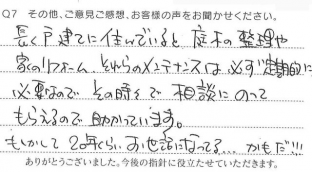 Q7 その他、ご意見ご感想、お客様の声をお聞かせください。
長く戸建てに住んでいると 庭木の整理や
家のリフォーム、それらのメンテナンスは必ず定期的に
必要なので その時々で 相談にのって
もらえるので 助かっています。
もしかして 20年くらい お世話になってる… かもだ!!!
ありがとうございました。今後の指針に役立たせていただきます。